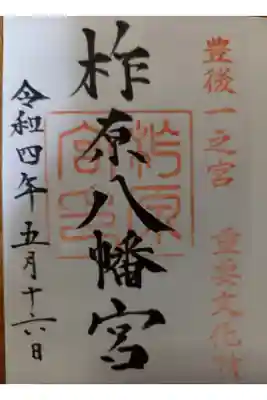 豊後一之宮
重要文化財
柞原八幡宮
柞原
宮印
令和四年五月十六日